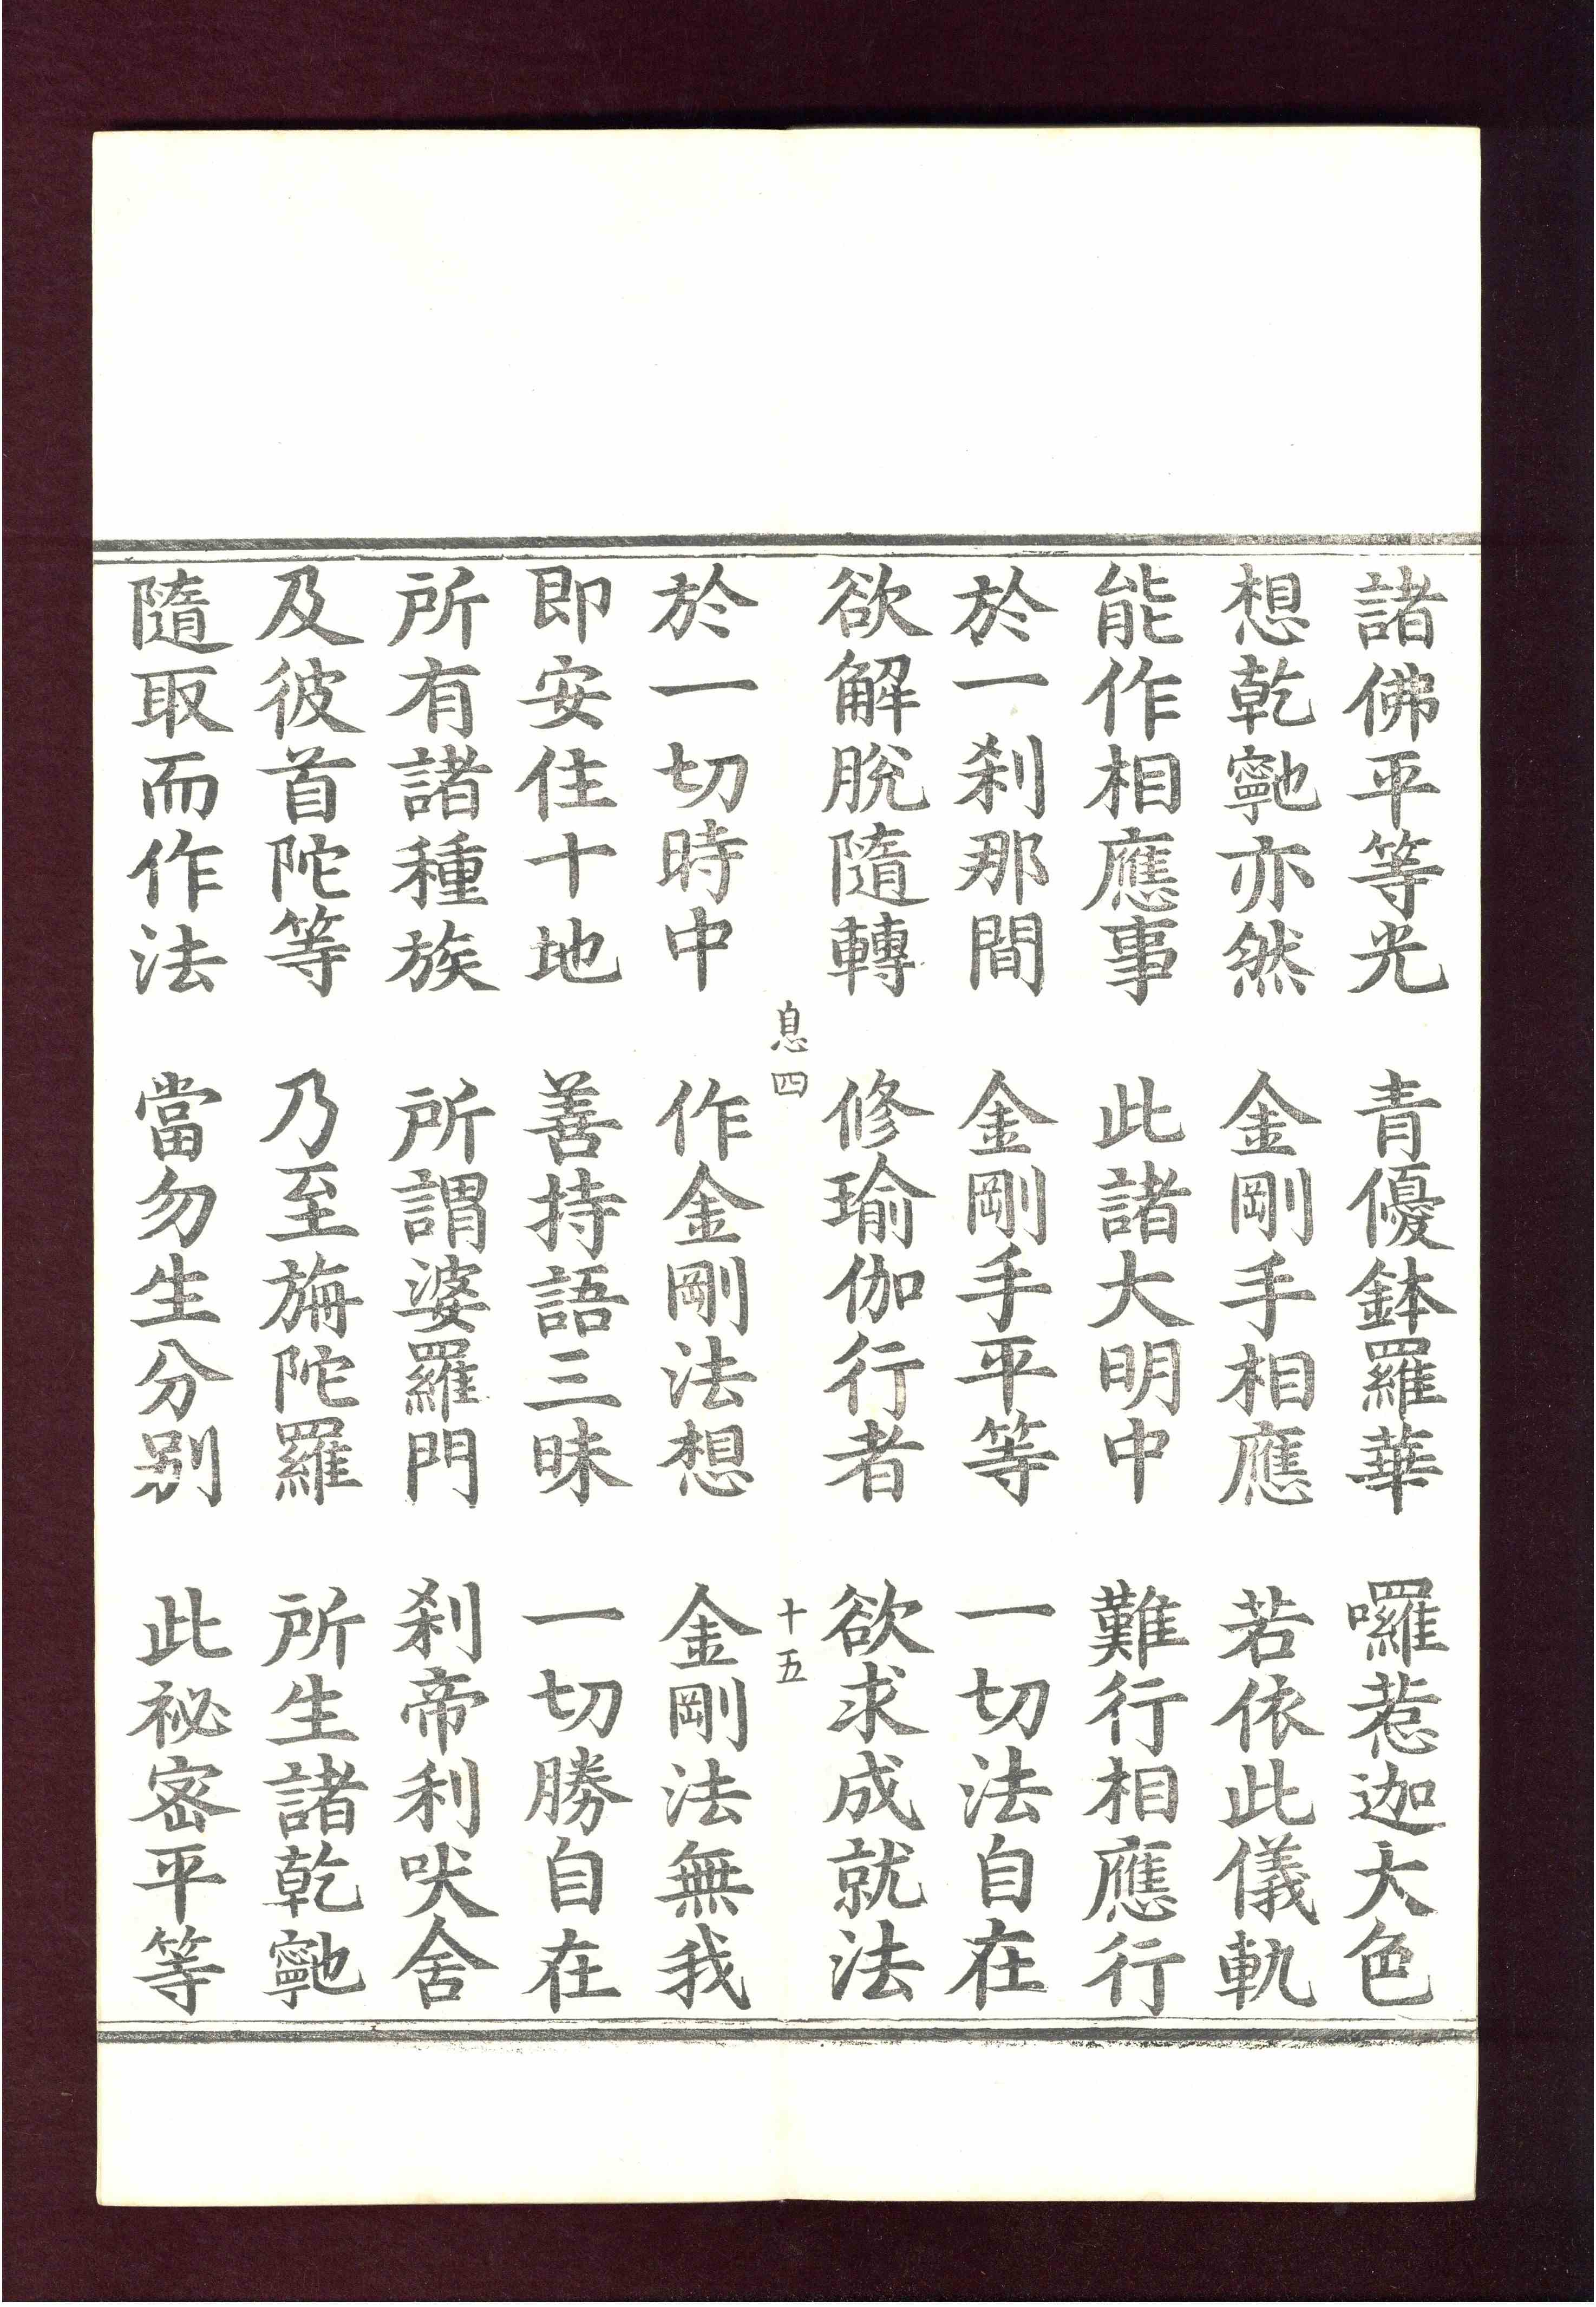 諸佛平等光　青優鉢羅華　囉惹迦大色
想乾𪘨亦然　金剛手相應　若依此儀軌
能作相應事　此諸大明中　難行相應行
於一剎那間　金剛手平等　一切法自在
欲解脫隨轉　修瑜伽行者　欲求成就法
息四　十五
於一切時中　作金剛法想　金剛法無我
即安住十地　善持語三昧　一切勝自在
所有諸種族　所謂婆羅門　剎帝利吠舍
及彼首陀等　乃至旃陀羅　所生諸乾𪘨
隨取而作法　當勿生分別　此祕密平等